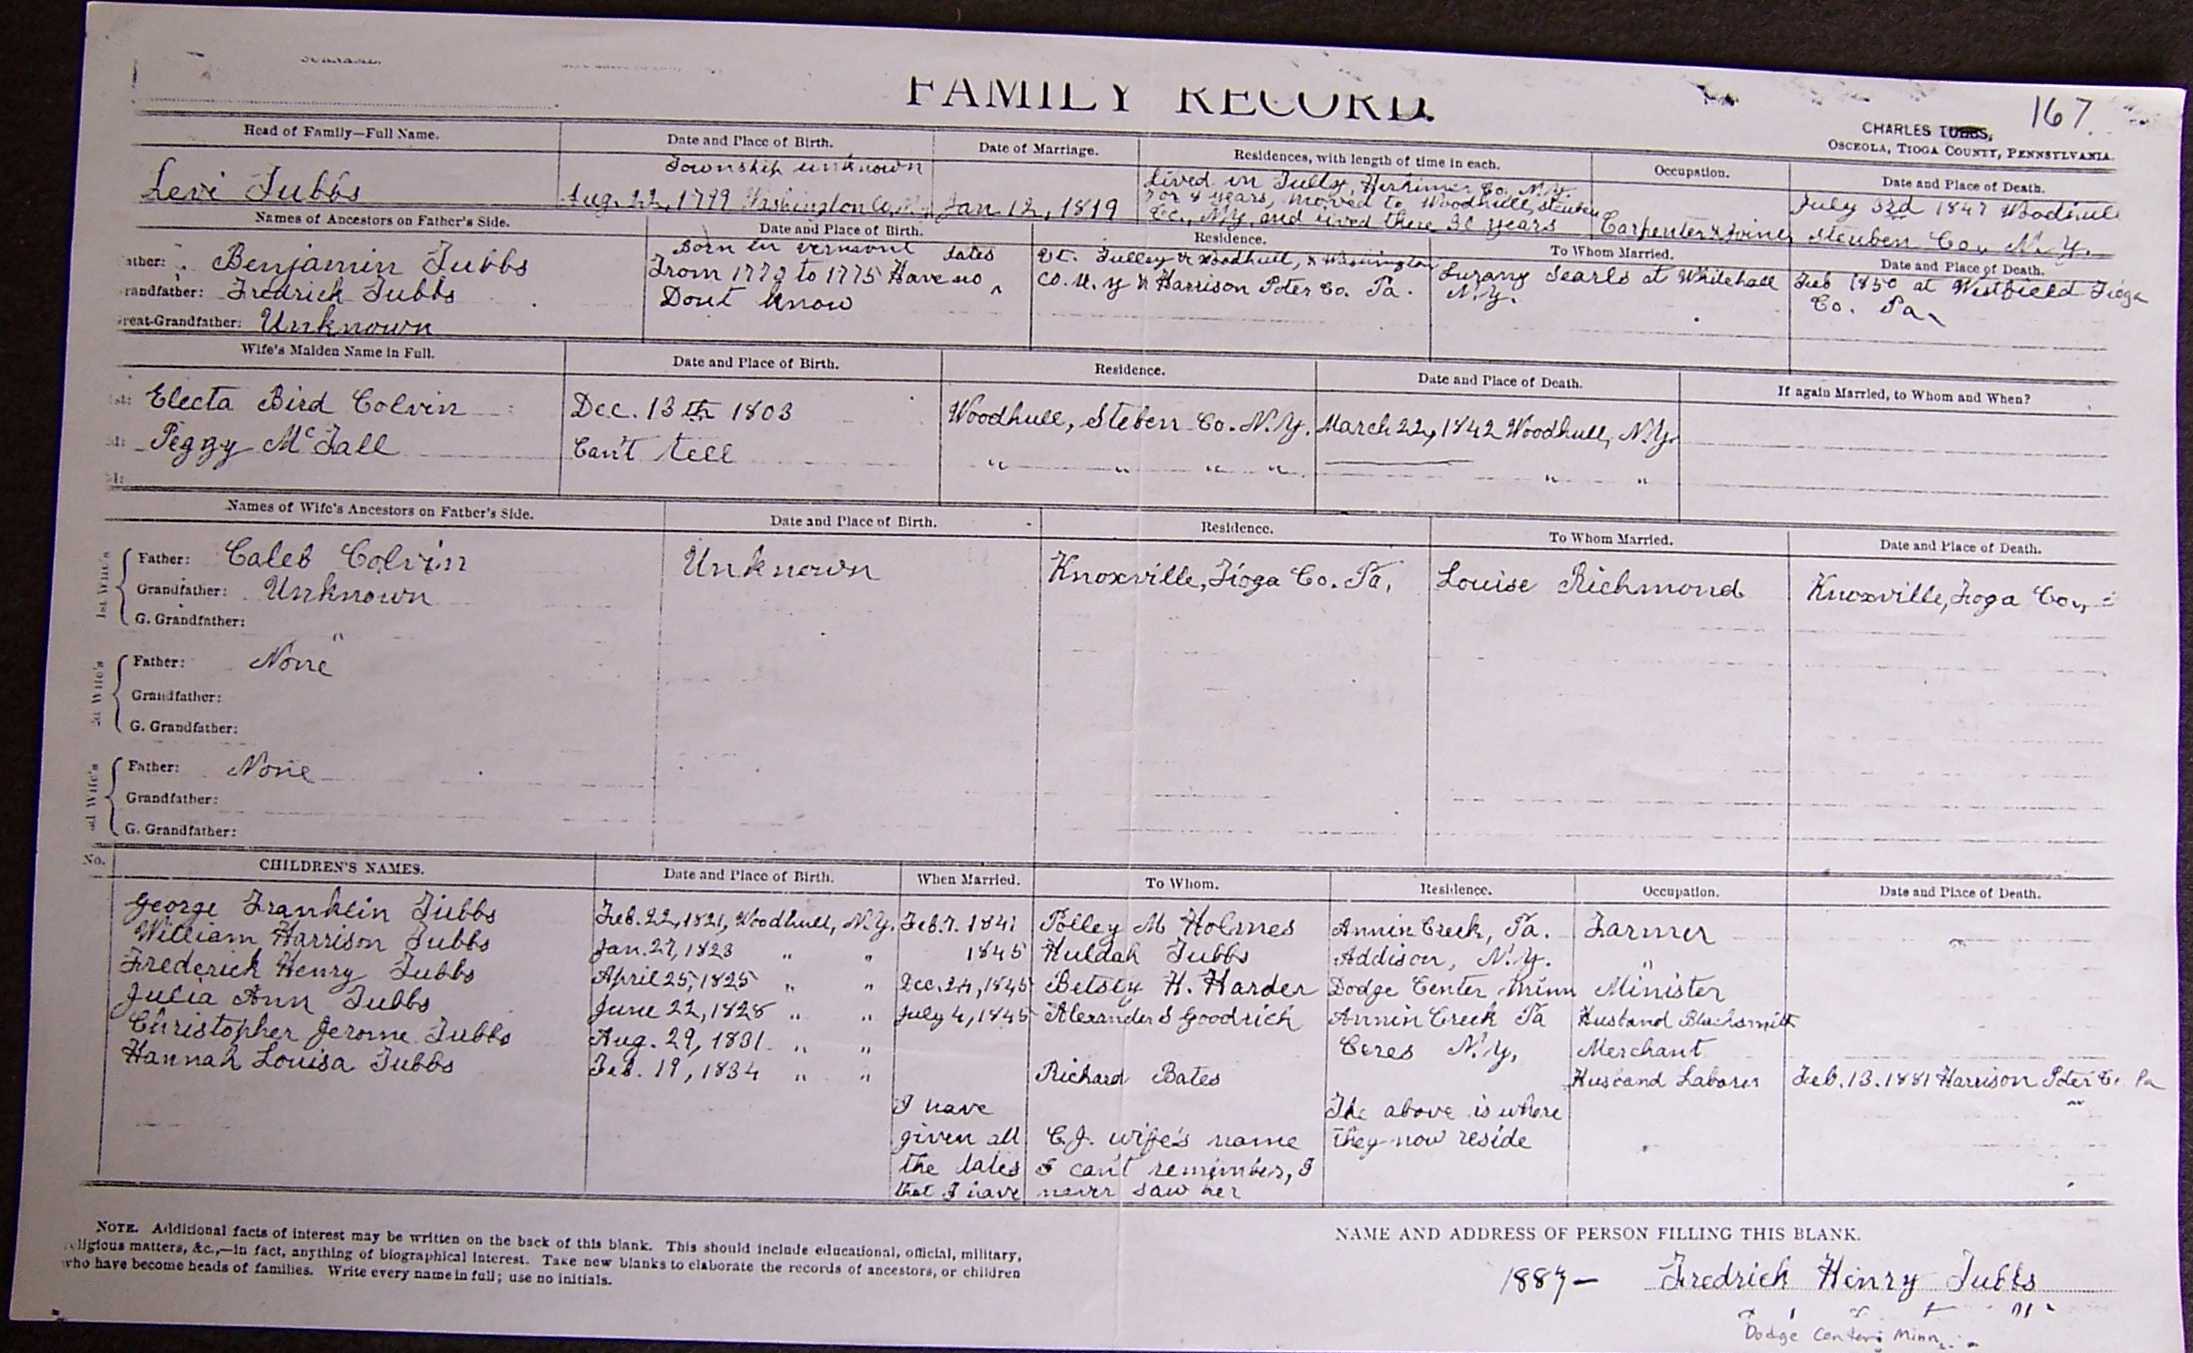 FAMILY RECORD.
167.
CHARLES TUBBS,
OSCEOLA, TIOGA COUNTY, PENNSYLVANIA.
Head of Family—Full Name. Date and Place of Birth. Date of Marriage. Residences, with length of time in each. Occupation. Date and Place of Death.
Township unknown lived in Tully, Herkimer Co. N.Y.
Levi Tubbs Aug. 22, 1799 Washington Co, N.Y. Jan 12, 1819 for 4 years, moved to Woodhull, Steuben July 3rd 1847 Woodhull
Co., N.Y. and lived there 30 years Carpenter & Joiner Steuben Co., N.Y.
Names of Ancestors on Father's Side. Date and Place of Birth. Residence. To Whom Married. Date and Place of Death.
ather: Benjamin Tubbs Born in Vermont dates Vt. Tulley & Woodhull, & Washington Lurany Searls at Whitehall Feb 1850 at Westfield Tioga
randfather: Fredrick Tubbs From 1772 to 1775 Have no Co. N.Y & Harrison Poter Co. Pa. N.Y. Co. Pa.
Dont know
reat-Grandfather: Unknown
Wife's Maiden Name in Full. Date and Place of Birth. Residence. Date and Place of Death. If again Married, to Whom and When?
1st: Electa Bird Colvin Dec. 13th 1803 Woodhull, Steben Co. N.Y. March 22, 1842 Woodhull, N.Y.
2d: Peggy McFall Can't tell " " " " " "
3d:
Names of Wife's Ancestors on Father's Side. Date and Place of Birth. Residence. To Whom Married. Date and Place of Death.
1st Wife's
Father: Caleb Colvin Unknown Knoxville, Tioga Co. Pa. Louise Richmond Knoxville, Tioga Co.,
Grandfather: Unknown
G. Grandfather: "
2d Wife's
Father: None
Grandfather:
G. Grandfather:
3d Wife's
Father: None
Grandfather:
G. Grandfather:
No. CHILDREN'S NAMES. Date and Place of Birth. When Married. To Whom. Residence. Occupation. Date and Place of Death.
George Franklin Tubbs Feb. 22, 1821, Woodhull, N.Y. Feb. 7. 1841 Polley M Holmes Annin Creek, Pa. Farmer
William Harrison Tubbs Jan. 27, 1823 " " 1845 Huldah Tubbs Addison, N.Y. "
Frederick Henry Tubbs April 25, 1825 " " Dec. 24, 1845 Betsey H. Harder Dodge Center, Minn Minister
Julia Ann Tubbs June 22, 1828 " " July 4, 1845 Alexander S Goodrich Annin Creek Pa Husband Blacksmith
Christopher Jerome Tubbs Aug. 29, 1831 " " Ceres N.Y. Merchant
Hannah Louisa Tubbs Feb. 19, 1834 " " Richard Bates Husband Laborer Feb. 13. 1881 Harrison Poter Co Pa
I have The above is where
given all C.J. wife's name they now reside
the dates I can't remember, I
that I have never saw her
NOTE. Additional facts of interest may be written on the back of this blank. This should include educational, official, military,
eligious matters, &c.,—in fact, anything of biographical interest. Take new blanks to elaborate the records of ancestors, or children
who have become heads of families. Write every name in full; use no initials.
NAME AND ADDRESS OF PERSON FILLING THIS BLANK.
1887— Fredrich Henry Tubbs
Dodge Center, Minn.